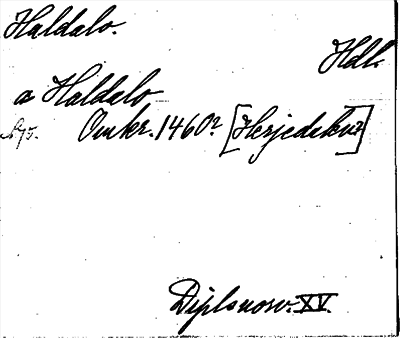 Haldalo.
Hdl.
a Haldalo
Omkr. 1460? [Herjedalen?]
Dipl. norv. XV.